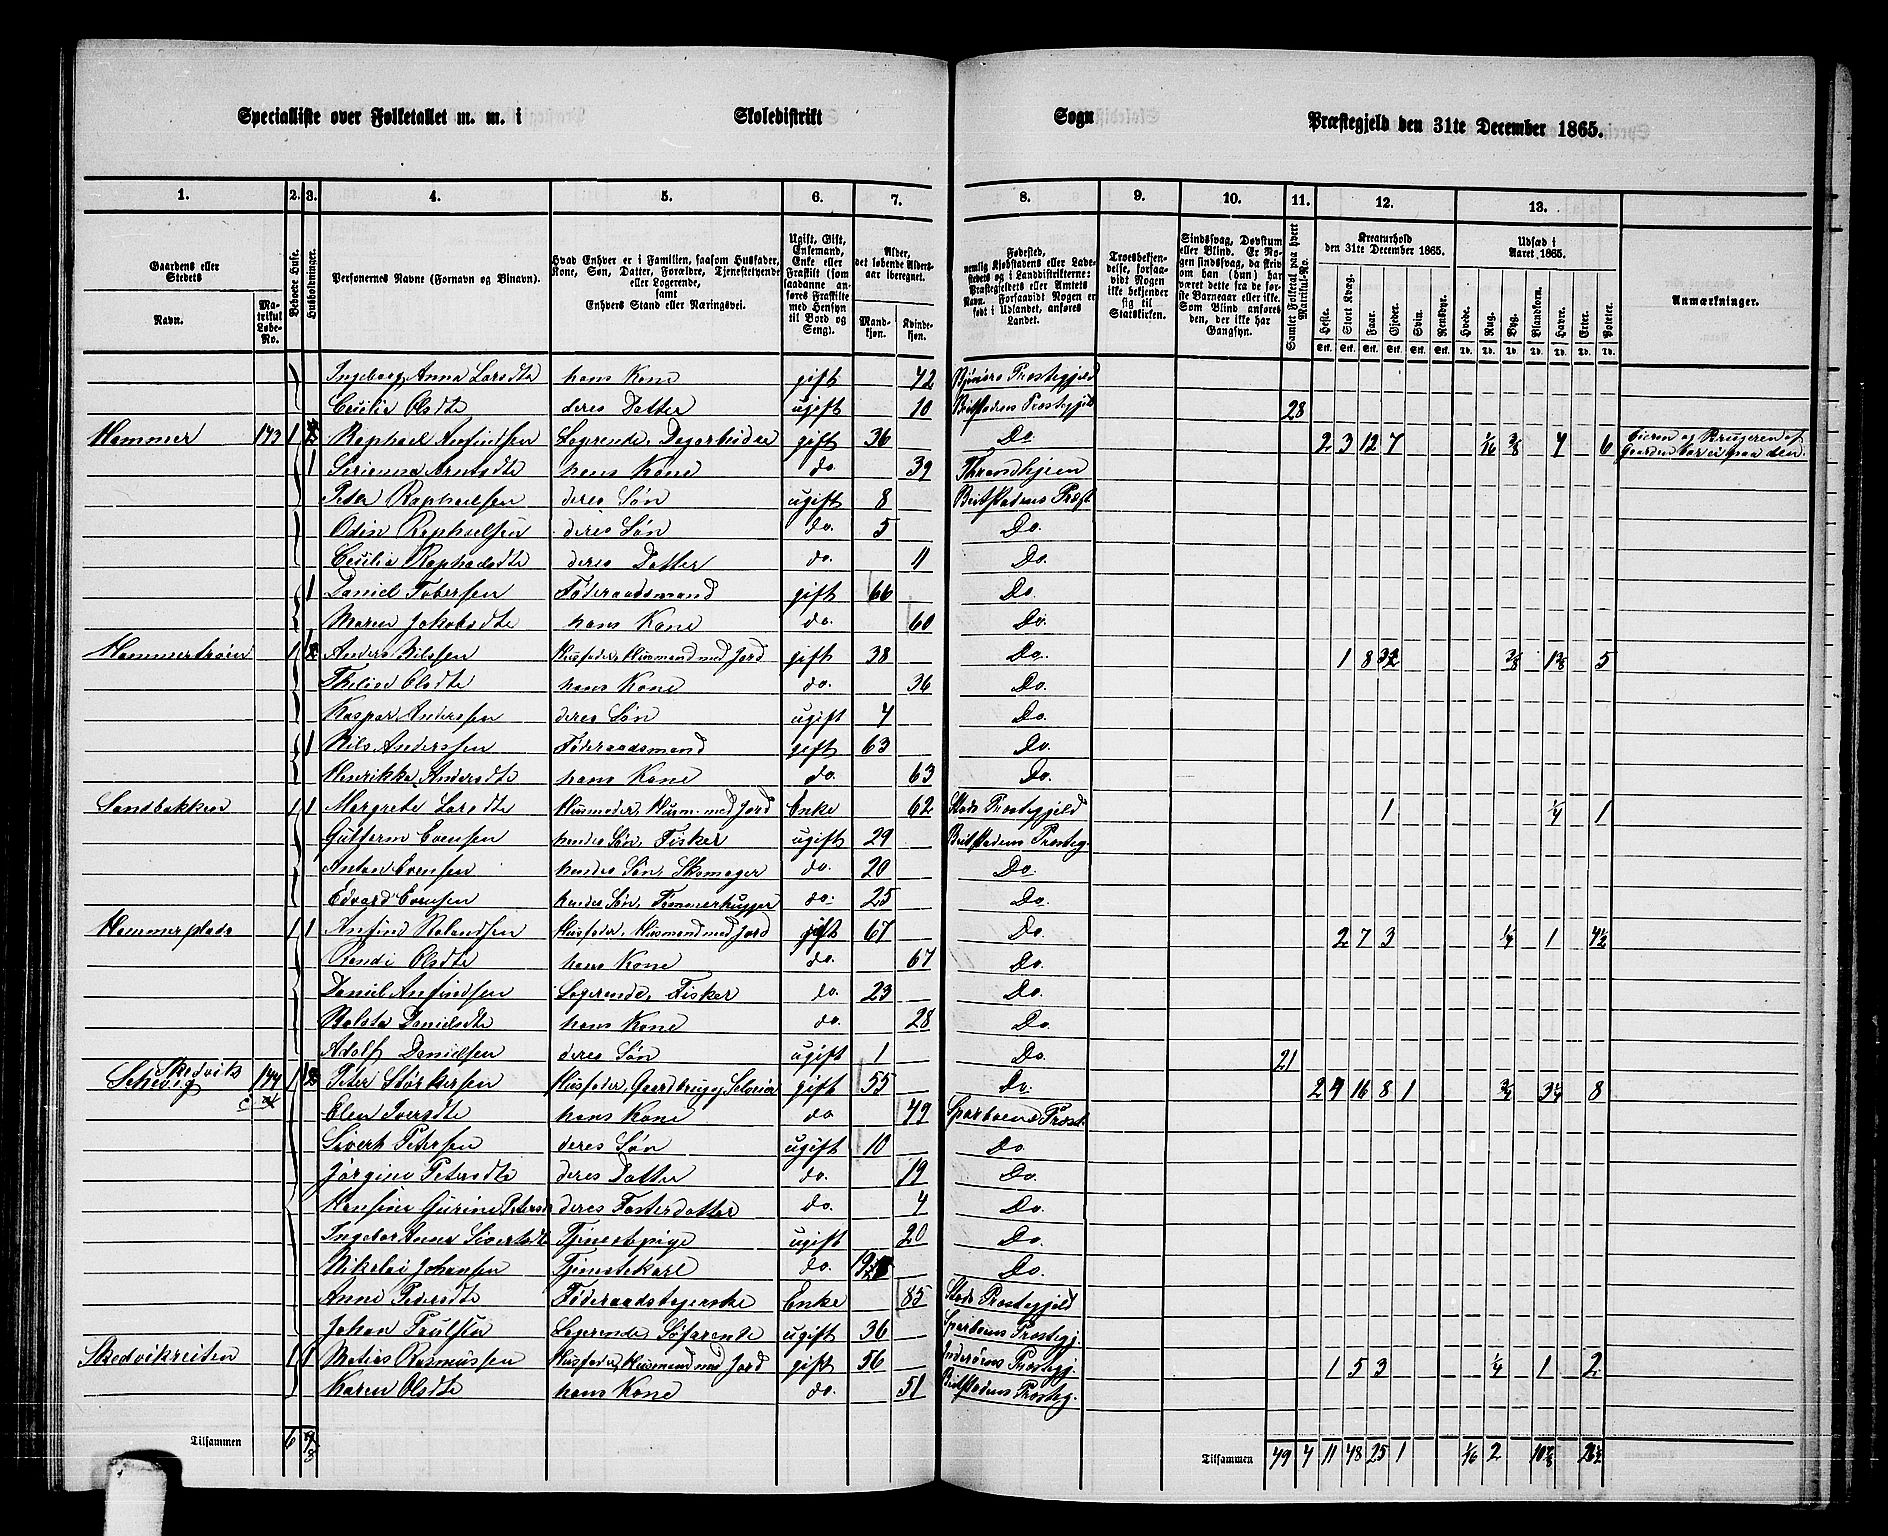 Specialliste over Folketallet m. m. i Skoledistrikt Sogn Præstegjeld den 31te December 1865.
1. 2. 3. 4. 5. 6. 7. 8. 9. 10. 11. 12. 13.
Gaardens eller Stedets
Navn.
Matrikul Løbe-No.
Bebøede Huse.
Husholdninger.
Personernes Navne (Fornavn og Binavn).
Hvad Enhver er i Familien, saasom Husfader, Kone, Søn, Datter, Forældre, Tjenestetyende eller Logerende, samt Enhvers Stand eller Næringsvei.
Ugift, Gift, Enkemand, Enke eller Fraskilt (som saadanne anføres Fraskilte med Hensyn til Bord og Seng).
Alder, det løbende Aldersaar iberegnet.
Mandkjøn. Kvindekjøn.
Fødested, nemlig Kjøbstadens eller Ladestedets og i Landdistrikterne: Præstegjeldets eller Amtets Navn. Forsaavidt Nogen er født i Udlandet, anføres Landet.
Troesbekjendelse, forsaavidt Nogen ikke bekjender sig til Statskirken.
Sindssvag, Døvstum eller Blind. Er Nogen sindssvag, da skrives om han (hun) har været dette fra de første Barneaar eller ikke. Som Blind anføres den, der ikke har Gangsyn.
Samlet Folketal paa hvert Matrikul-No.
Kreaturhold den 31te December 1865.
Heste. Stort Kvæg. Faar. Gjeder. Svin. Rensdyr.
Udsæd i Aaret 1865.
Hvede. Rug. Byg. Blandkorn. Havre. Erter. Poteter.
Anmærkninger.
Ingeborg Anna Larsdtr hans Kone gift 42 Bynæs Præstegjeld
Cecilia Olsdtr deres Datter ugift 10 Beitstadens Præstegjeld 28
Hammer 173 1 Raphael Anfindsen Logerende, Dagarbeider gift 36 Do. 2 3 12 7 1/16 3/8 4 6 Eieren og Brugeren af
1 Serianna Arntsdtr hans Kone do. 39 Throndhjem Gaarden boer ei paa den.
Peter Raphaelsen deres Søn ugift 8 Beitstadens Præst.
Odin Raphaelsen deres Søn do. 5 Do.
Cecilia Raphaelsdtr deres Datter do. 11 Do.
1 Daniel Tobersen Føderaadsmand gift 66 Do.
Maren Jakobsdtr hans Kone do. 60 Do.
Hammertrøen 1 Anders Nilssen Husfader, Husmand med Jord gift 38 Do. 1 8 3/8 1 5
Thelia Olsdtr hans Kone do. 36 Do.
Kaspar Anderssen deres Søn ugift 4 Do.
1 Nils Anderssen Føderaadsmand gift 63 Do.
Henrikka Andersdtr hans Kone do. 63 Do.
Sandbakken 1 1 Margrete Larsdtr Husmoder, Husm. med Jord Enke 62 Stods Præstegjeld 1 1/4 1
Guttorm Evensen hendes Søn, Fisker ugift 29 Beitstadens Præsteg.
Anton Evensen hendes Søn, Skomager do. 20 Do.
Edvard Evensen hendes Søn, Tømmerhugger do. 25 Do.
Hammerplads 1 1 Anfind Rolandsen Husfader, Husmand med Jord gift 67 Do. 2 7 3 1/4 1 4 1/2
Randi Olsdtr hans Kone do. 67 Do.
Daniel Anfindsen Logerende, Fisker do. 23 Do.
Danielsdtr hans Kone do. 28 Do.
Adolf Danielsen deres Søn ugift 1 Do. 21
Skedvik
Selsvig 174 1 Peter Størkersen Husfader, Gaardbrug. Selveier gift 55 Do. 2 4 16 8 1 3/4 3 1/4 8
Elen Iversdtr hans Kone do 49 Sparboens Præst.
Sivert Petersen deres Søn ugift 10 Do.
Jørgine Petersdtr deres Datter do. 19 Do.
Hansine Gurine Petersd. deres Fosterdatter do. 4 Do.
Ingebor Anna Sivertsdtr Tjenestepige ugift 20 Do.
Nikolai Johansen Tjenestekarl do. Do.
Anne Pedersdtr Føderaadstagerske Enke 85 Stods Præstegjeld
Johan Paulsen Logerende Søfarende ugift 36 Sparboens Præstegj.
Skedvikreiten 1 1 Matias Rasmussen Husfader, Husmand med Jord gift 56 Inderøens Præstegj. 1 5 3 1/4 1 2
Karen Olsdtr hans Kone do. 51 Beitstadens Præsteg.
Tilsammen 6 Tilsammen 49 4 11 48 25 1 1/16 2 10 7/8 26 1/2